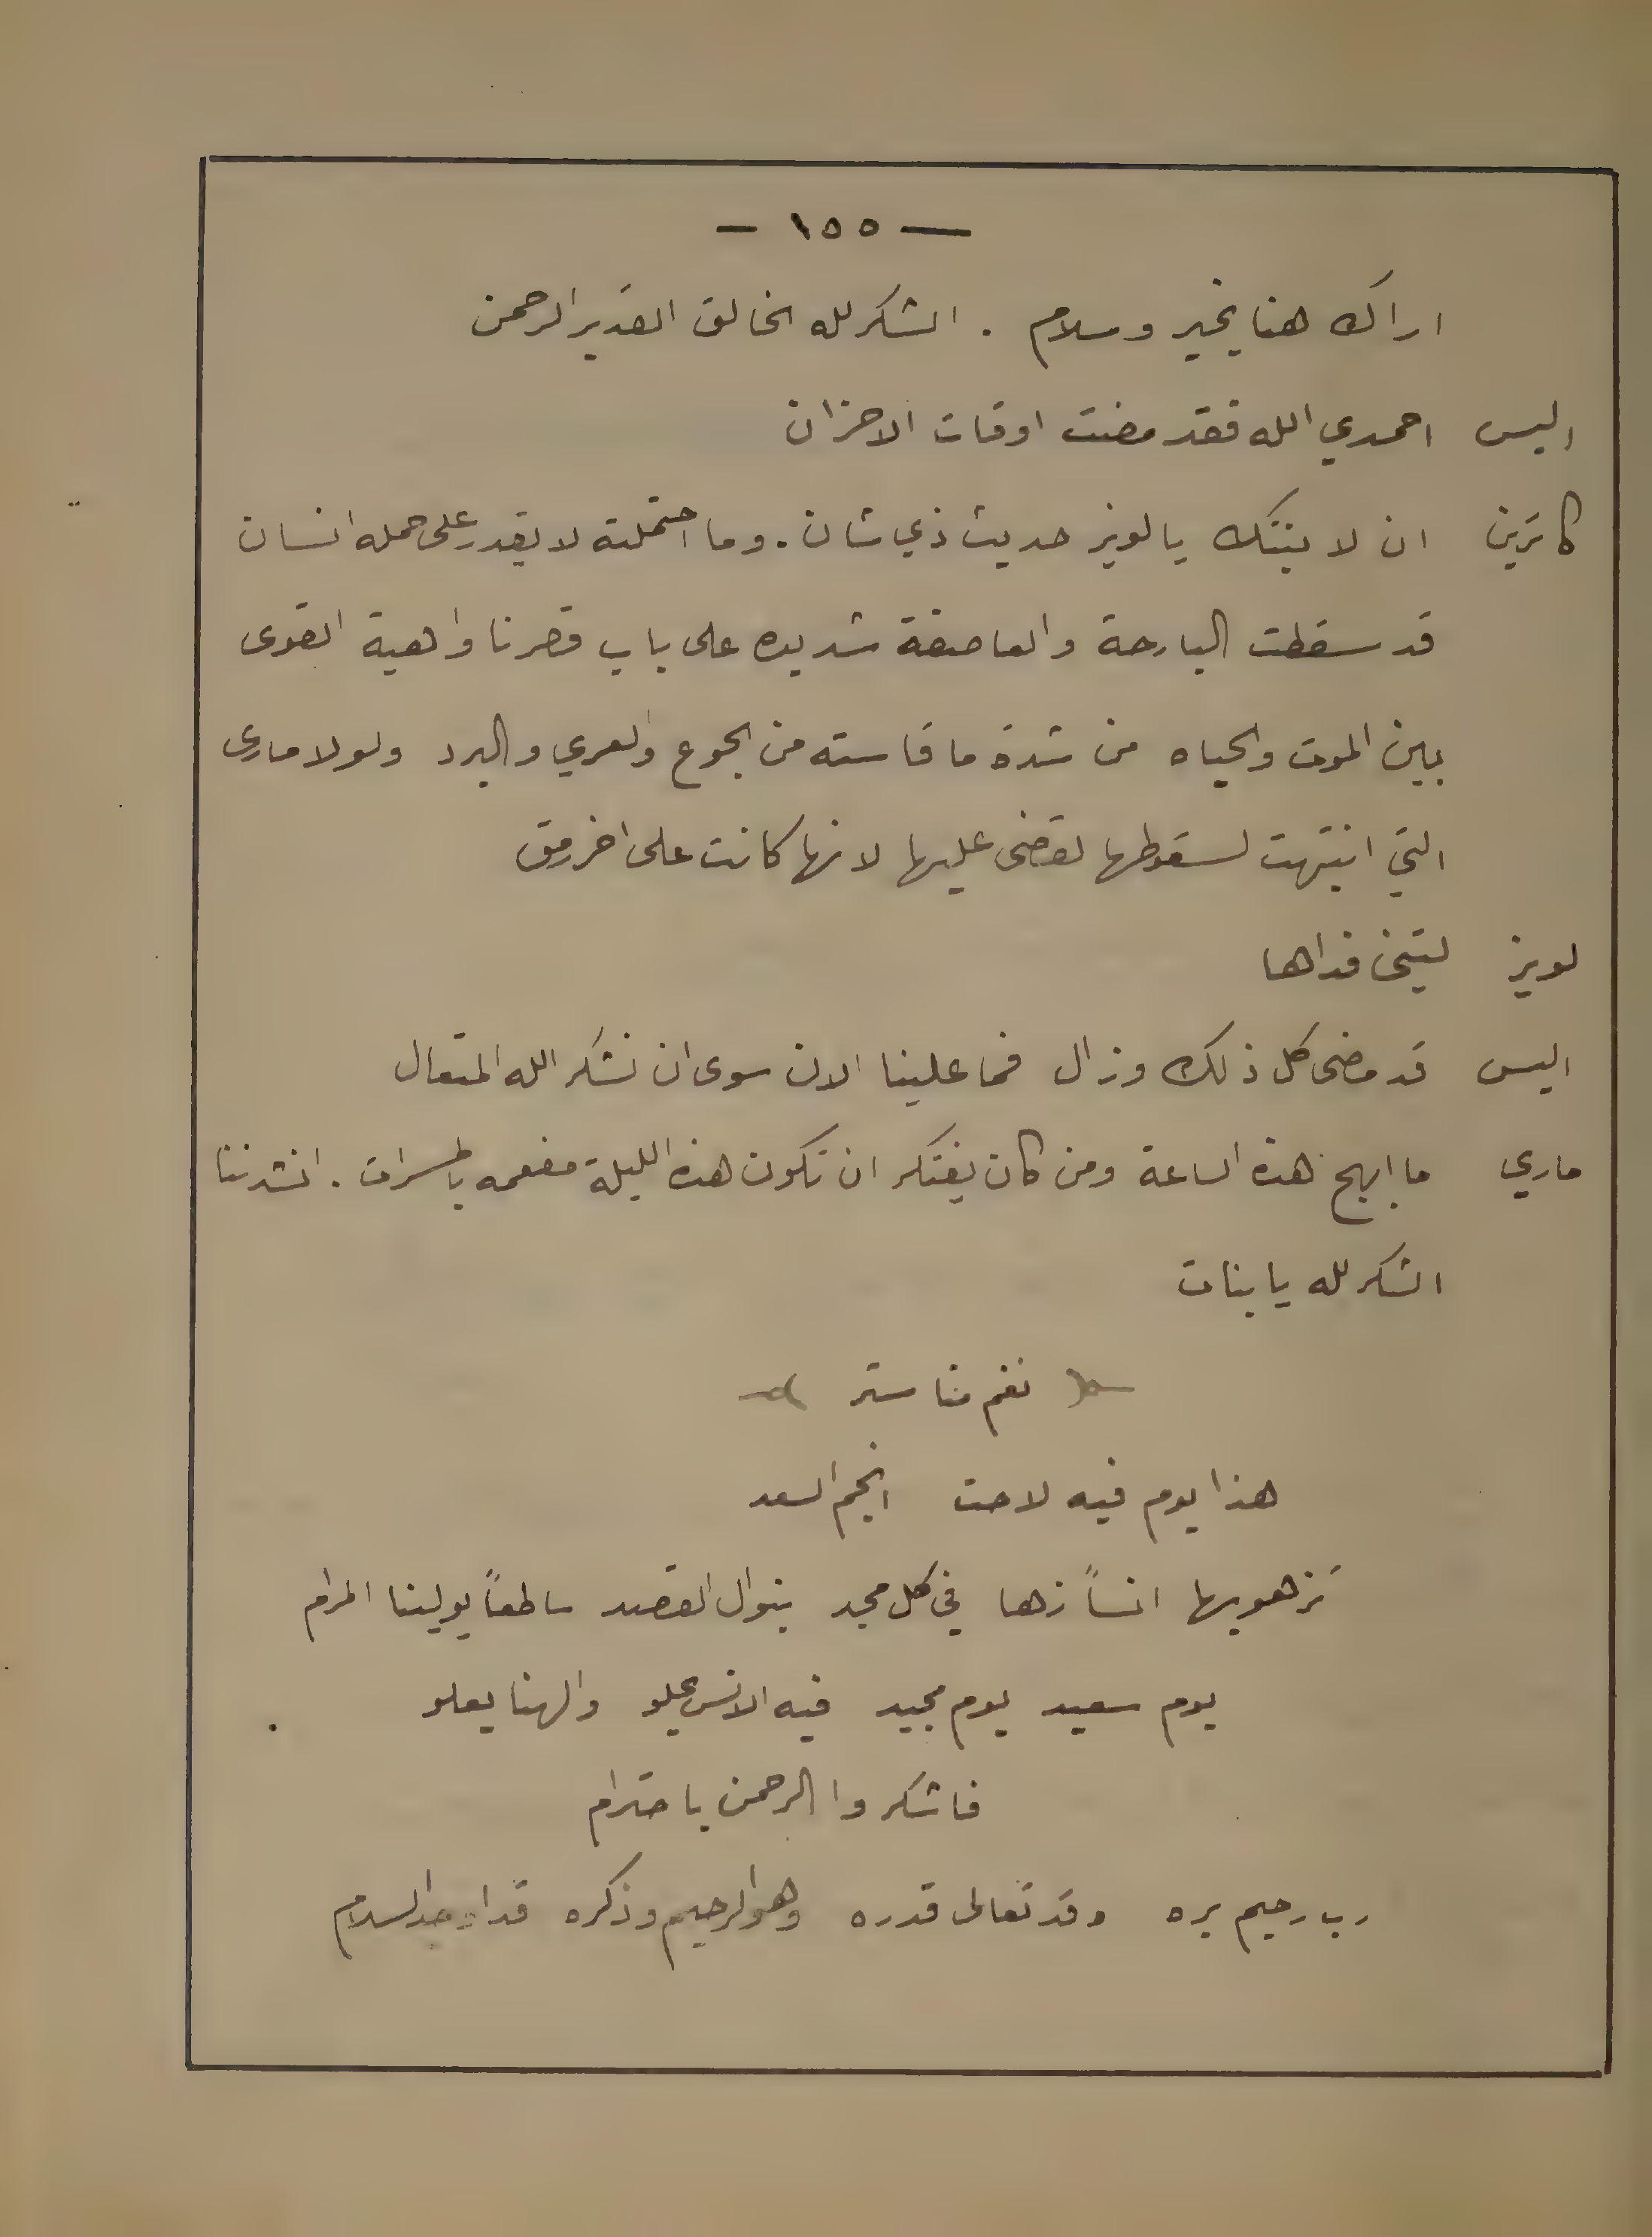 — ١٥٥ —
اراك هنا بخير وسلام . الشكر لله الخالق القدير الرحمن
اليس احمدي الله فقد مضت اوقات الاحزان
كاترين ان لابنتك يالويز حديث ذي شان . وما احتملته لا يقدر على حمله انسان
قد سقطت البارحة والعاصفة شديده على باب قصرنا واهية القوى
بين الموت والحياه من شدة ما قاسته من الجوع والعري والبرد ولولا مارى
التي انتبهت لسقوطها لقضى عليها لانها كانت على اخر رمق
لويز ليتنى فداها
اليس قد مضى كل ذلك وزال فما علينا الان سوى ان نشكر الله المتعال
ماري ما ابهج هذه الساعة ومن كان يفتكر ان تكون هذه الليلة مفعمه بالمسرات . انشدننا
الشكر لله يا بنات
نغم مناستر
هذا يوم فيه لاحت انجم السعد
تزهو بها انساً زها في كل مجد بنوال القصد ساطعاً يولينا المرام
يوم سعيد يوم مجيد فيه الانس يحلو والهنا يعلو
فاشكروا الرحمن باحترام
رب رحيم بره وقد تعالى قدره وهو الرحيم وذكره قد السلام